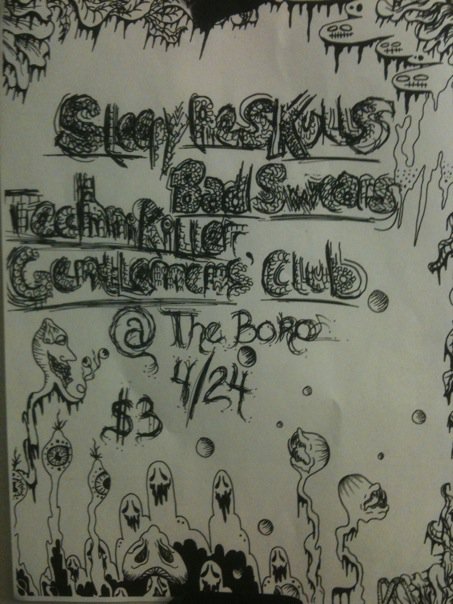 Sleepy Pie Skulls
Bad Swears
Techni Killer
Gentlemens' Club
@ The Boro
4/24
$3